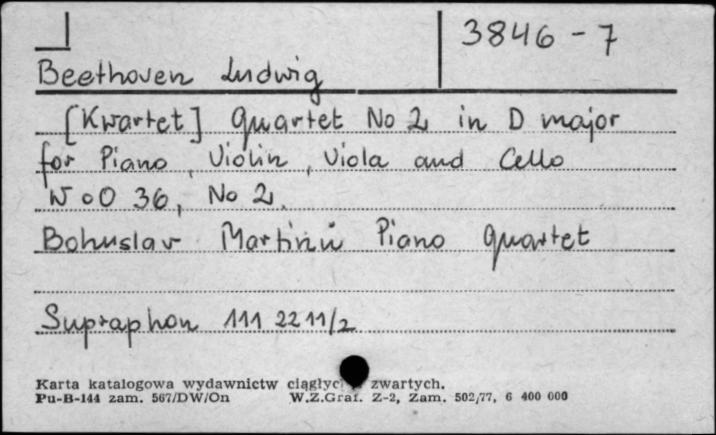 3846-7
Beethoven Ludwig
[Kwartet] Quartet No 2 in D major
for Piano, Violin, Viola and Cello
WoO 36, No 2.
Bohuslav Martinů Piano Quartet
Supraphon 111 2211/2
Karta katalogowa wydawnictw ciągłyc zwartych.
Pu-B-144 zam. 567/DW/On W.Z.Graf. Z-2, Zam. 502/77, 6 400 000